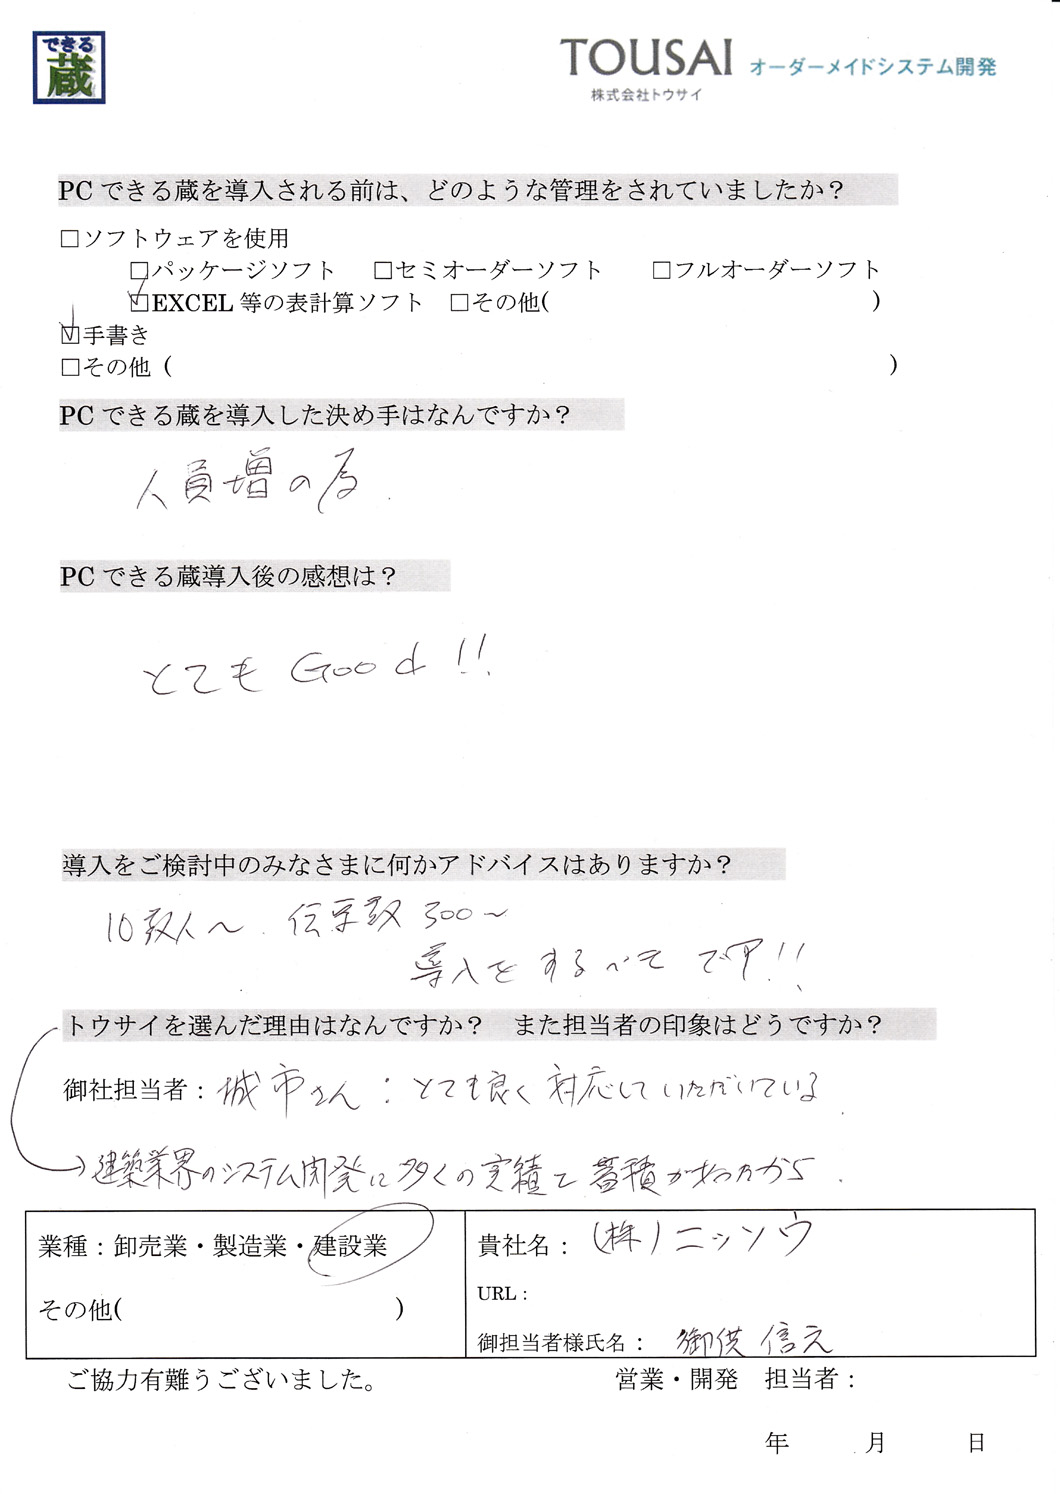 できる
蔵
TOUSAI オーダーメイドシステム開発
株式会社トウサイ
PCできる蔵を導入される前は、どのような管理をされていましたか？
□ソフトウェアを使用
□パッケージソフト □セミオーダーソフト □フルオーダーソフト
☑EXCEL 等の表計算ソフト □その他( )
☑手書き
□その他 ( )
PCできる蔵を導入した決め手はなんですか？
人員増の為.
PCできる蔵導入後の感想は？
とても Good!!
導入をご検討中のみなさまに何かアドバイスはありますか？
10数人～. 伝票数 300～
導入をするべきです!!
トウサイを選んだ理由はなんですか？ また担当者の印象はどうですか？
御社担当者： 城市さん：とても良く対応していただいている.
→建築業界のシステム開発に多くの実績と蓄積があったから.
業種：卸売業・製造業・建設業
その他( )
貴社名： (株)ニッソウ
URL：
御担当者様氏名： 御供 信之
ご協力有難うございました。
営業・開発 担当者：
年 月 日